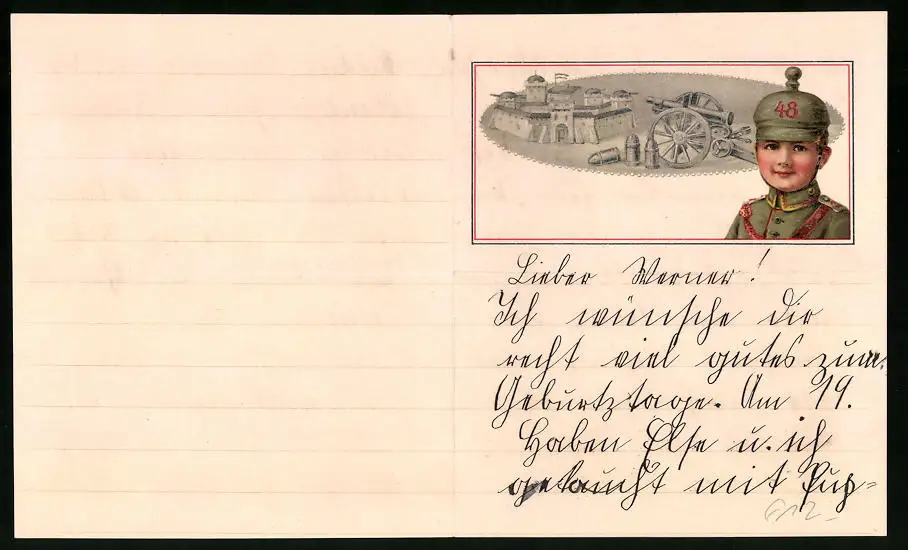 48
Lieber Werner!
Ich wünsche dir
recht viel gutes zum
Geburtztage. Am 19.
Haben Else u. ich
getaucht mit Pup=